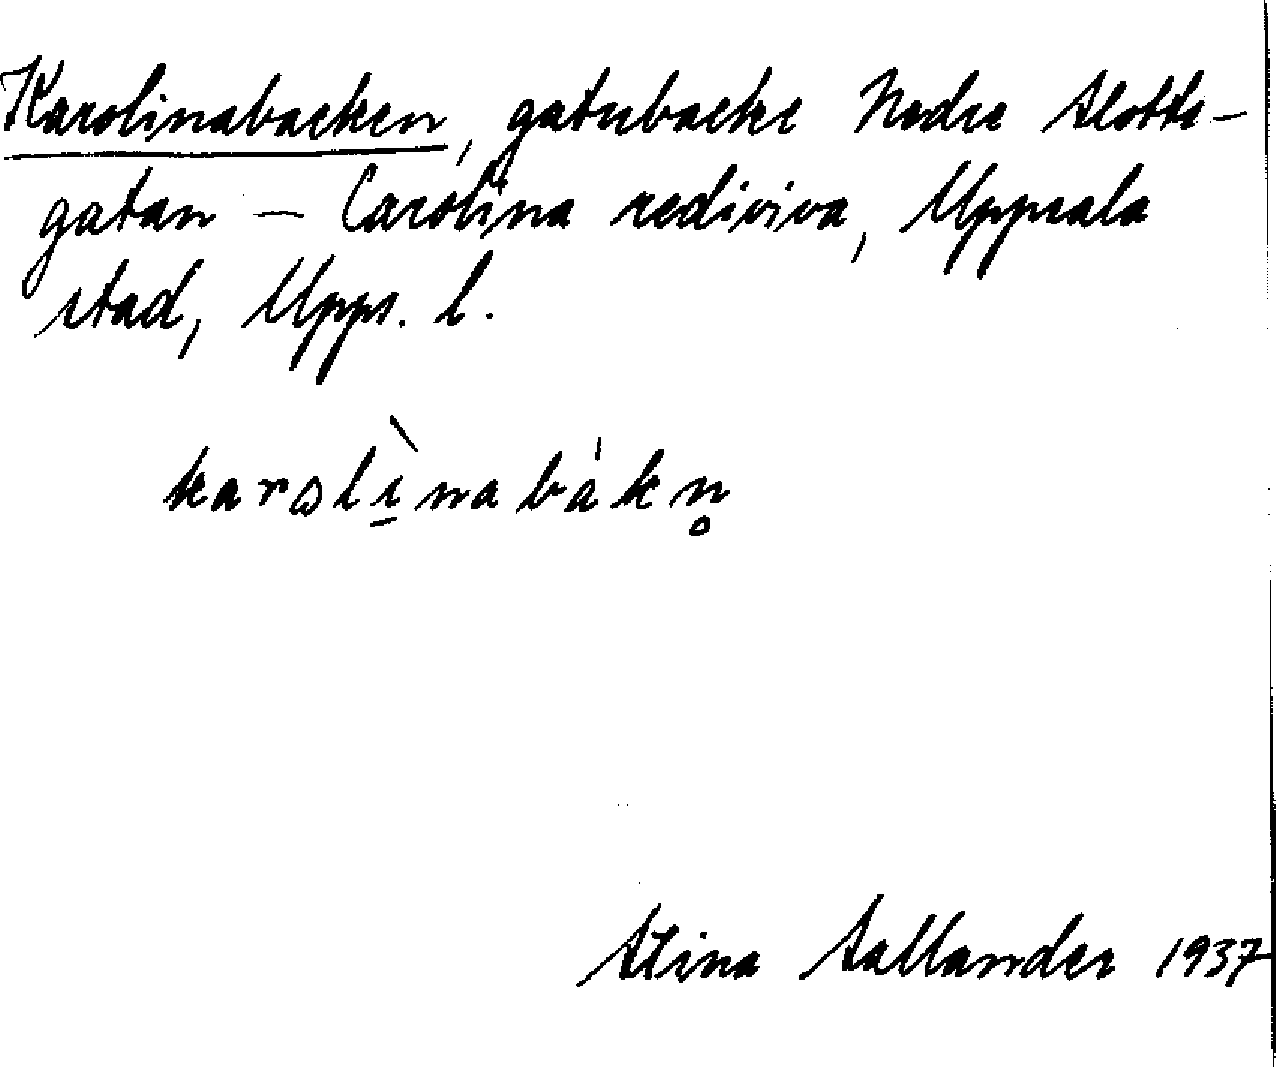 Karolinabacken, gatubacke Nedre Slotts-
gatan – Carolina rediviva, Uppsala
stad, Upps. l.
karωlì̱nabákn̥
Stina Sallander 1937